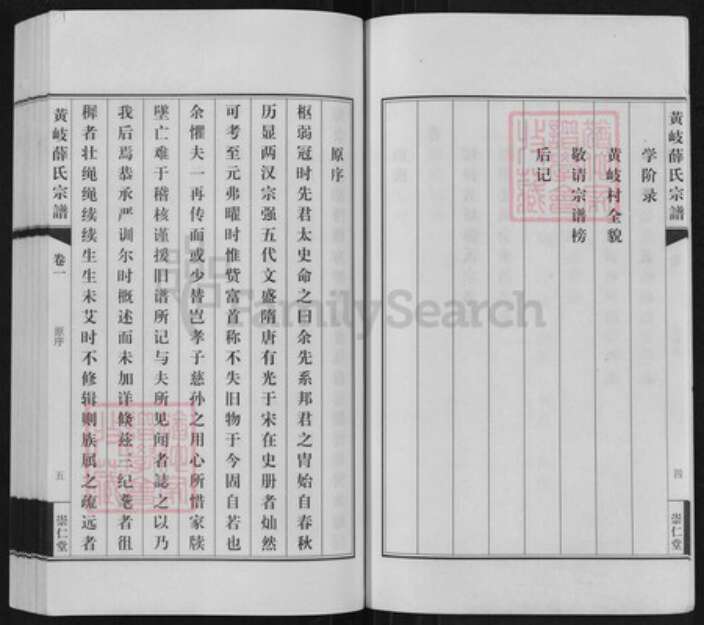 黄岐薛氏宗譜
学阶录
黄岐村全貌
敬请宗谱榜
后记
四
崇仁堂
原序
枢弱冠时先君太史命之曰余先系邦君之胄始自春秋
历显两汉宗强五代文盛隋唐有光于宋在史册者灿然
可考至元弗曜时惟赀富首称不失旧物于今固自若也
余惧夫一再传而或少替岂孝子慈孙之用心所惜家牍
坠亡难于稽核谨援旧谱所记与夫所见闻者誌之以乃
我后焉恭承严训尔时概述而未加详倏兹三纪耄者徂
稺者壮绳绳续续生生未艾时不修辑则族属之疏远者
黄岐薛氏宗譜
卷一
原序
五
崇仁堂
FamilySearch